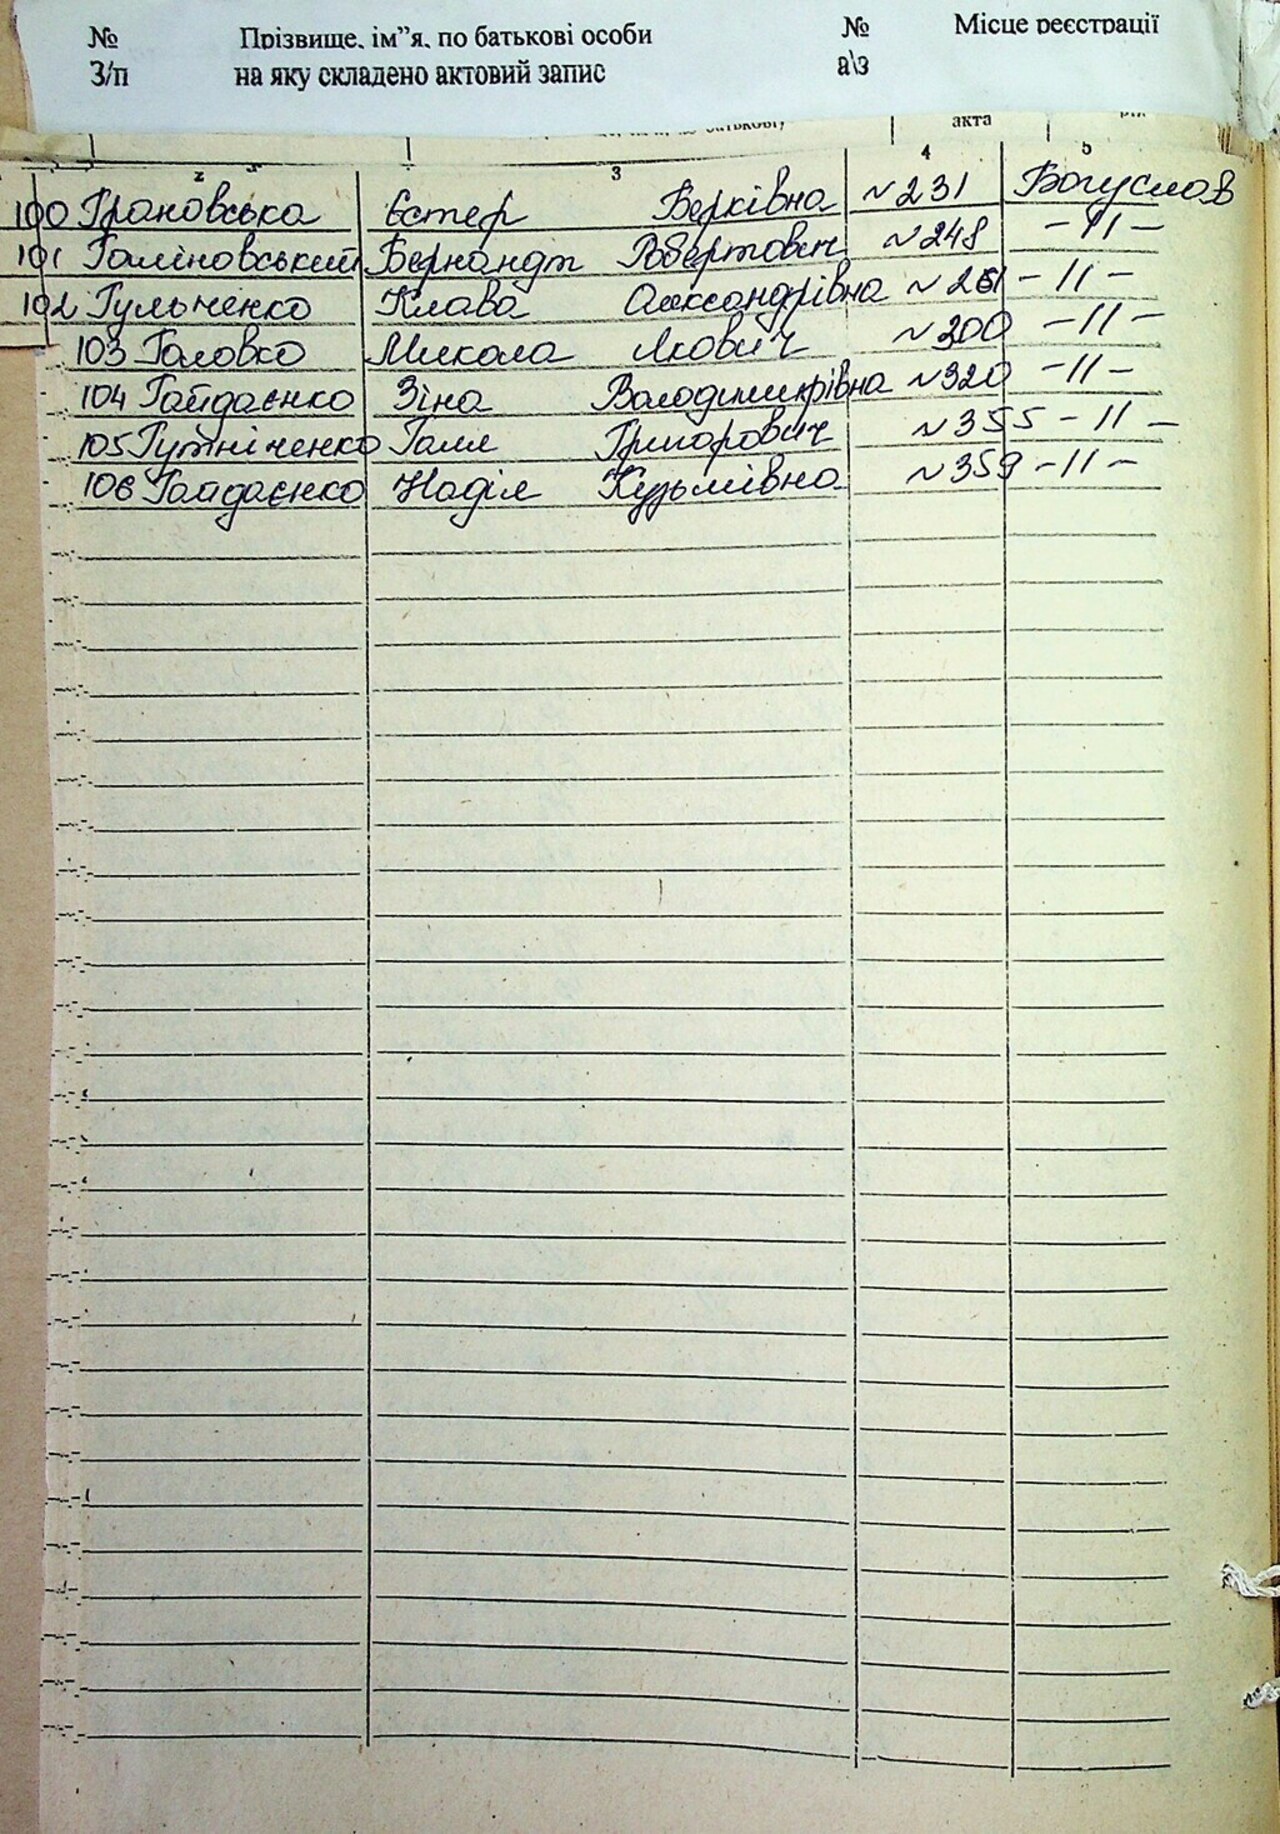 № Прізвище, ім”я, по батькові особи № Місце реєстрації
З/п на яку складено актовий запис а\з
батькові) акта
2 3 4 5
100 Грановська Єстер Берківна №231 Богуслав
101 Галіновський Бернандт Робертович №248 -11-
102 Гульченко Клава Олександрівна №261 -11-
103 Головко Микола Якович №300 -11-
104 Гайдаєнко Зіна Володимирівна №320 -11-
105 Гутніченко Галя Григорович №355 -11-
106 Гайдаєнко Надія Кузьмівна №359 -11-